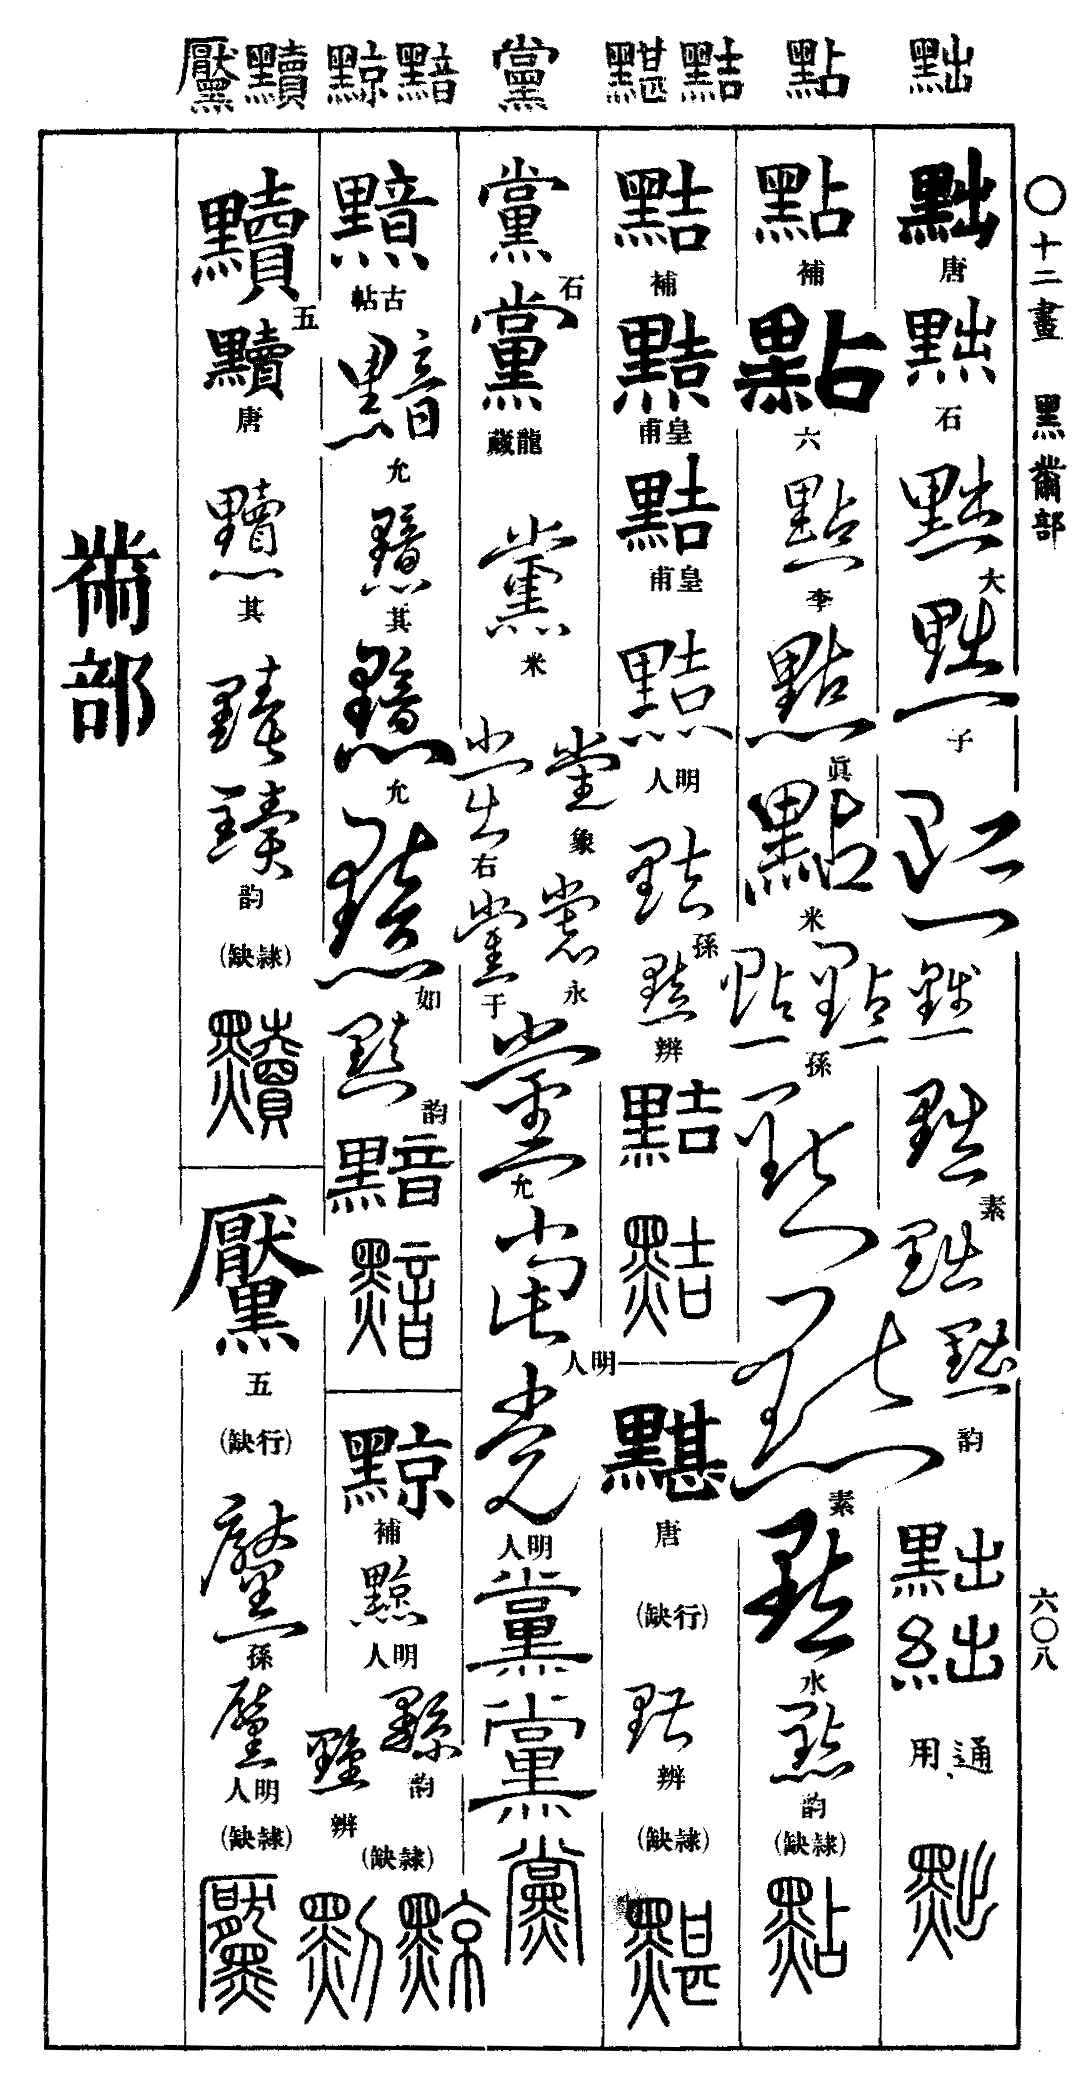 黜
點
黠 黮
黨
黯 黥
黷 黶
〇十二畫 黑黹部
六〇八
黜
唐
黜
石
黜
大
黜
子
黜
黜
黜
素
黜
黜
韵
黜
絀
通用
黜
點
補
點
六
點
李
點
眞
點
米
點
點
孫
點
點
素
點
水
點
韵
(隷缺)
點
黠
補
黠
皇甫
黠
皇甫
黠
明人
黠
孫
黠
辨
黠
黠
黮
唐
(行缺)
黮
辨
(隷缺)
黮
黨
石
黨
龍藏
黨
米
黨
象
黨
右
黨
永
黨
于
黨
允
黨
明人
黨
明人
黨
黨
黨
黯
古帖
黯
允
黯
其
黯
允
黯
如
黯
韵
黯
黯
黥
補
黥
明人
黥
韵
黥
辨
(隷缺)
黥
黥
黷
五
黷
唐
黷
其
黷
黷
韵
(隷缺)
黷
黶
五
(行缺)
黶
孫
黶
明人
(隷缺)
黶
黹部